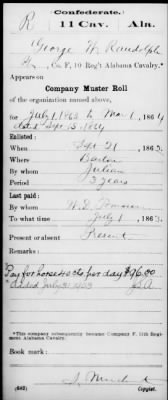 Confederate.
R 11 Cav. Ala.
George W. Randolph
Co. F, 10 Reg't Alabama Cavalry.*
Appears on
Company Muster Roll
of the organization named above,
for July 1, 1863 to Mar 1, 1864
dated Sept 15, 1864
Enlisted:
When Sept 21, 1863.
Where Barton
By whom Julian
Period 3 years
Last paid:
By whom W. D.
To what time July 1, 1863.
Present or absent Present
Remarks:
Pay for horse 40 cts per day $96.00
*This company subsequently became Company F, 11th Regiment Alabama Cavalry.
Book mark:
(642) Copyist.